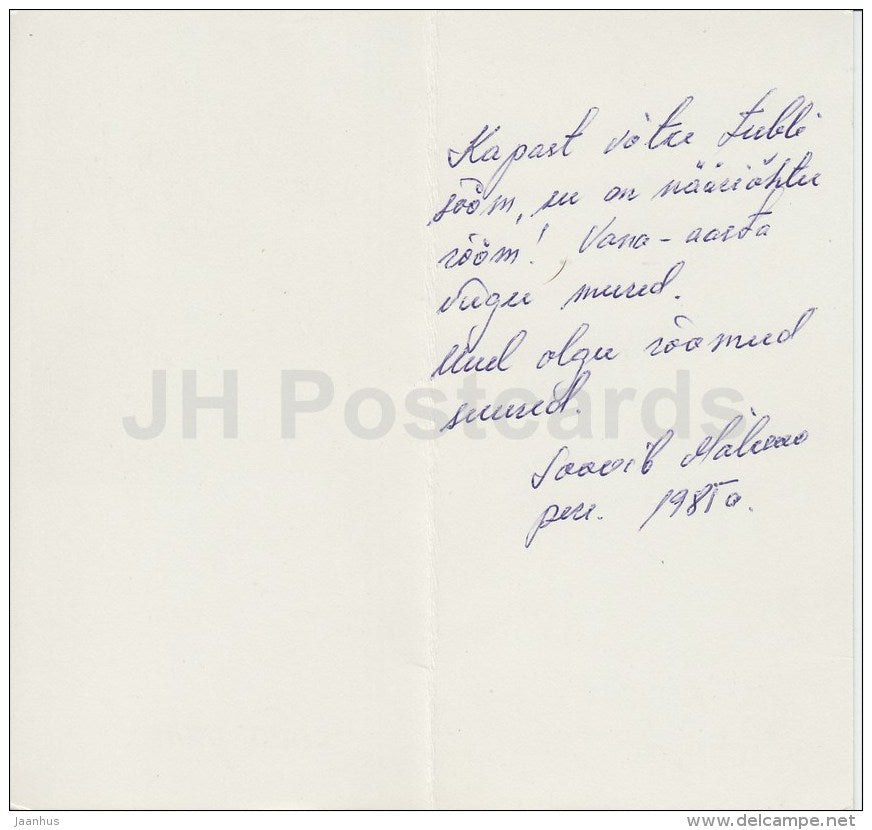 Kapast võtke tubli
sõõm, see on nääriõhtu
rõõm! Vana-aasta
viigu mured.
Uuel olgu rõõmud
suured.
Soovib
pere. 1985 a.
JH Postcards
Jaanhus
delcampe.net